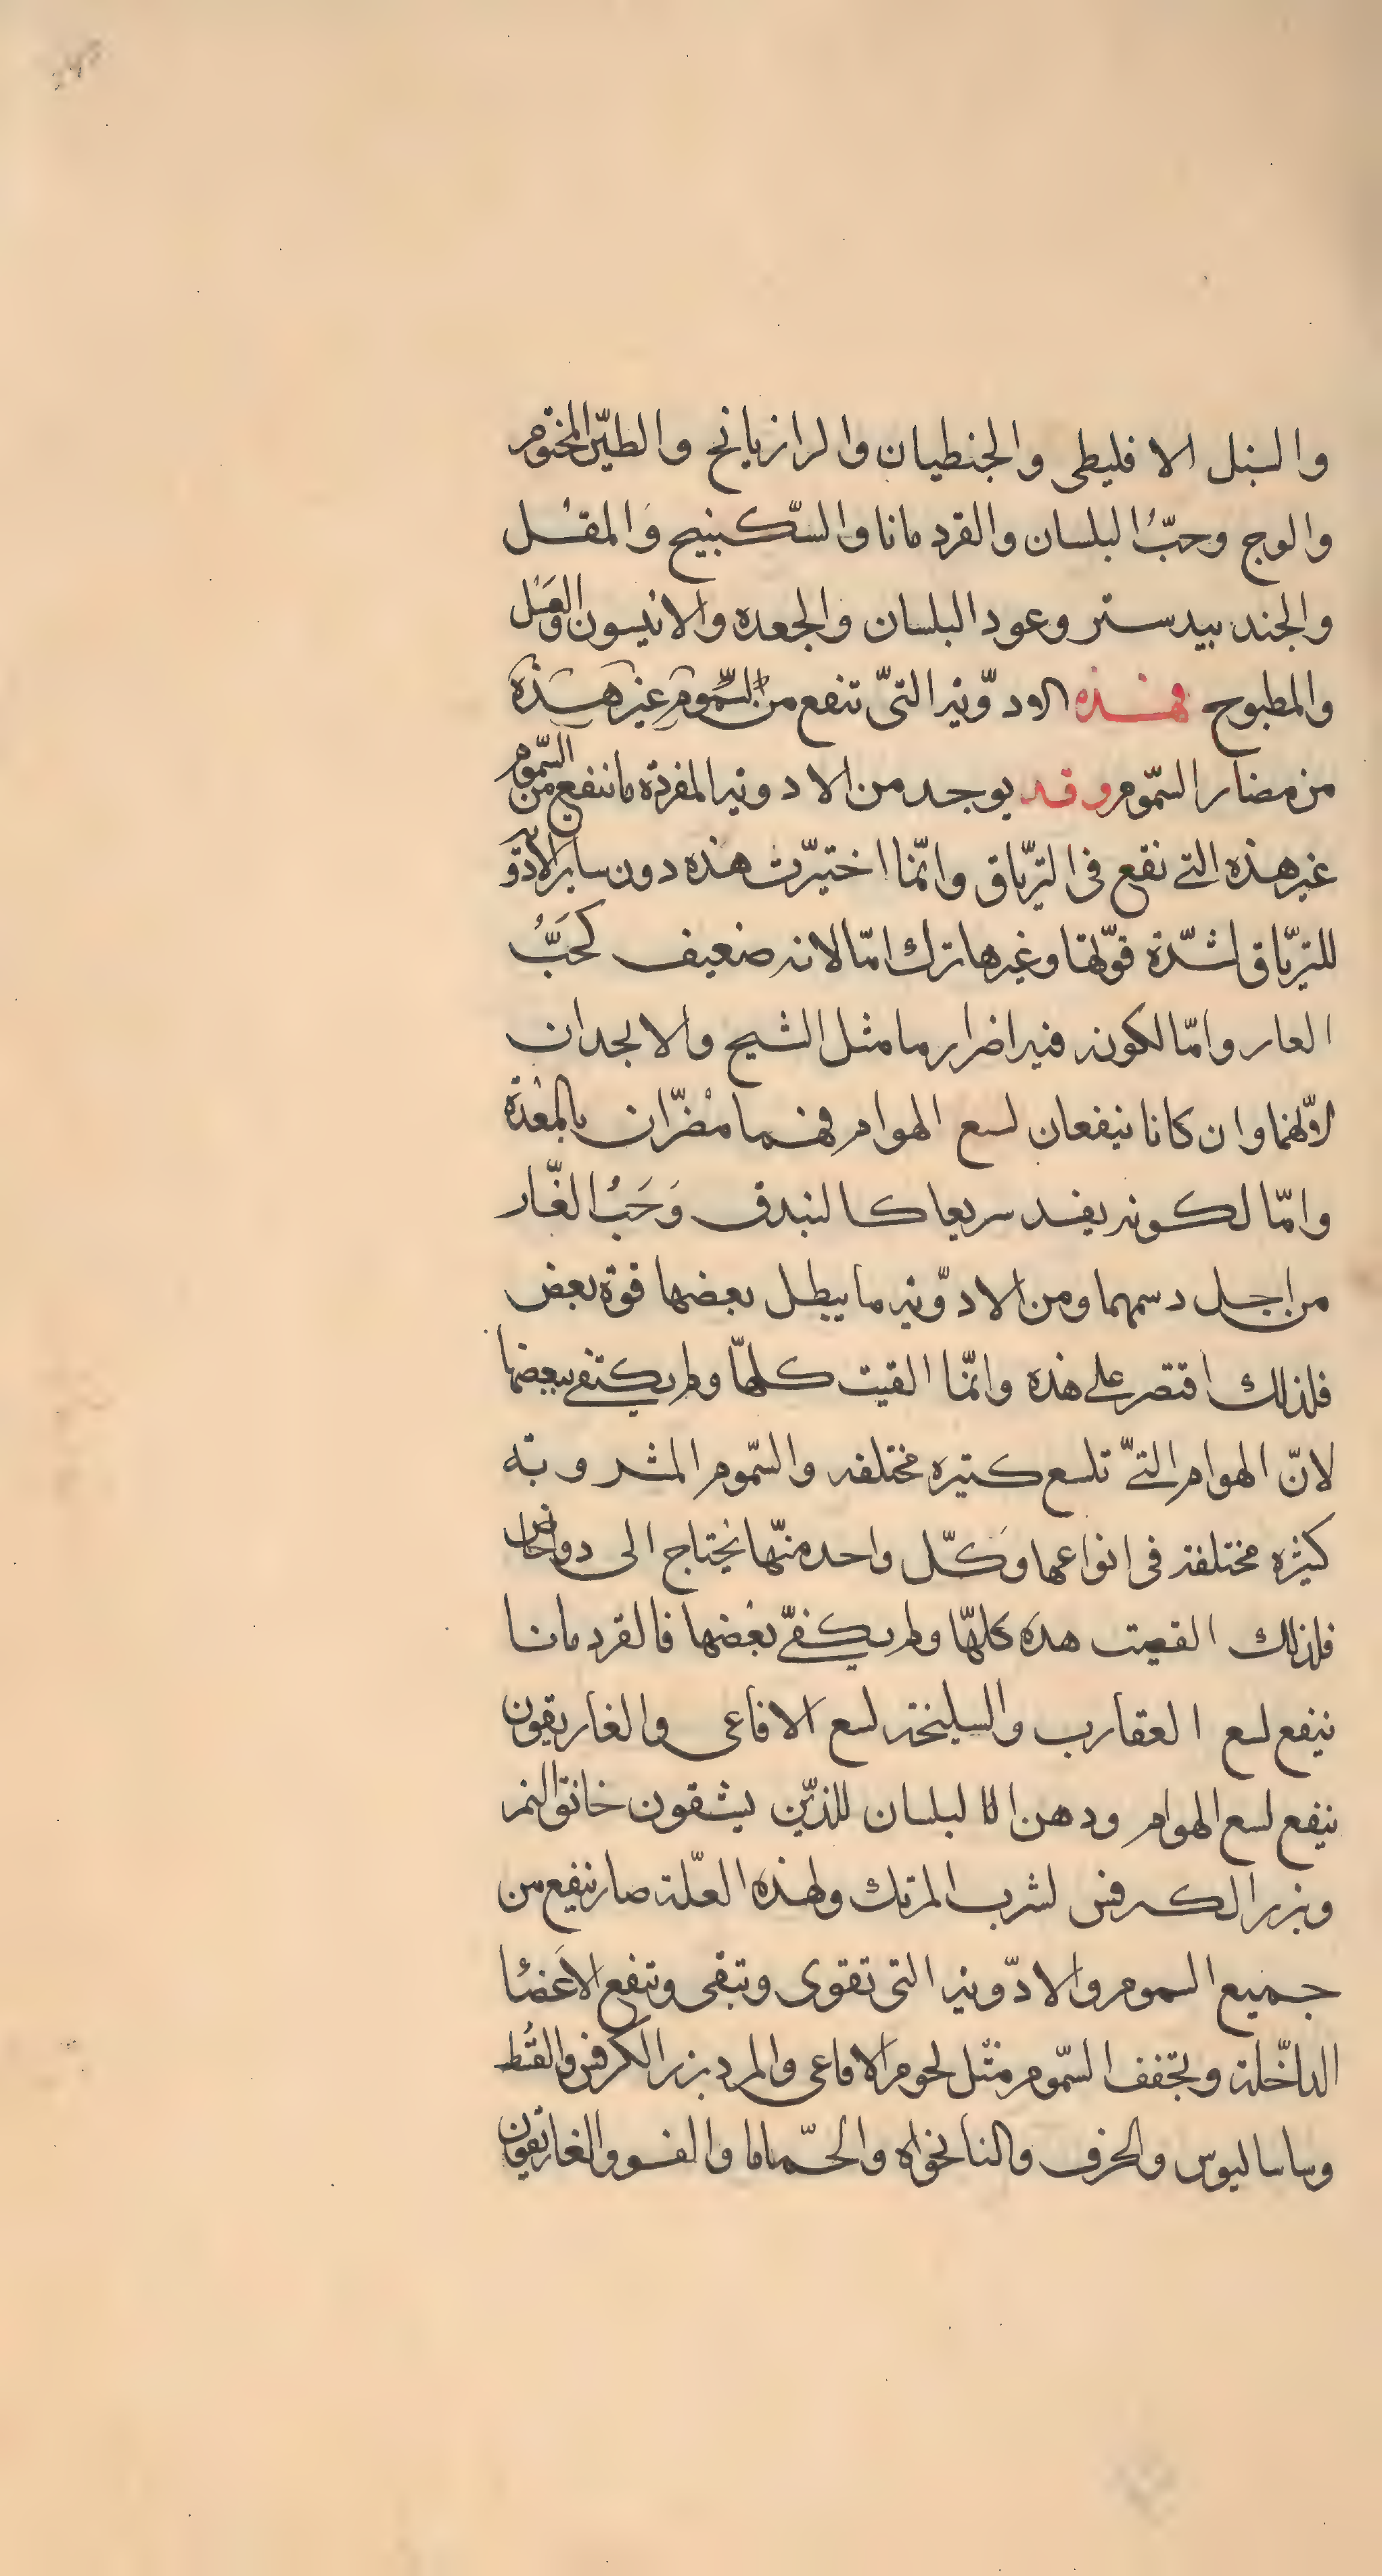 والسنبل الاقليطى والجنطيان والرازيانج والطّين المختوم
والوج وحبُّ البلسان والقردمانا والسّكبنيج وَالمقل
والجندبيدستر وعود البلسان والجعده والانيسون والعسل
والمطبوخ فهذه الادوّيه التىّ تنفع من السّموم غير هذه
من مضار السّموم وقد يوجد من الادويه المفردة ما ننفع من السّموم
غير هذه التى نقع فى الترّياق وانّما اختيّرت هذه دون ساير الادوّيه
للترّياق لشدّة قوّتها وغيرها ترك امّا لانه ضعيف كحَبُّ
العار وامّا لكونه فيه اضرار ما مثل الشيح والانجدان
لانّهما وان كانا ينفعان لسع الهوام فهما مضرّان بالمعدة
وامّا لكونه يفسد سريعا كالبندق وَحَبُ الغّار
من اجل دسمهما ومن الادوّيه ما يبطل بعضها قوة بعض
فلذلك اقتصر على هذه وانّما القيت كلهّا ولم يكتفى ببعضها
لانّ الهوام التىّ تلسع كتيره مختلفه والسّموم المشروبة
كثيره مختلفة فى انواعها وَكلّ واحد منّها يحتاج الى دوا خاص
فلذلك القيت هده كلهّا ولم يكفىّ بعضها فالقردمانا
ينفع لسع العقارب والسليخه لسع الافاعى والغاريقون
ينفع لسع الهوام ودهن البلسان للذيّن يشقون خانق النمر
وبزر الكرفس لشرب المرتك ولهذه العلّة صار ننفع من
جميع السموم والادّويه التى تقوى وتبقى وتنفع الاعَضا
الداخّلة وتجفف السّموم مثّل لحوم الافاعى والمر وبزر الكرفس والقُسط
وساساليوس والحرف والنانخواه والحّماما والفو والغاريقون